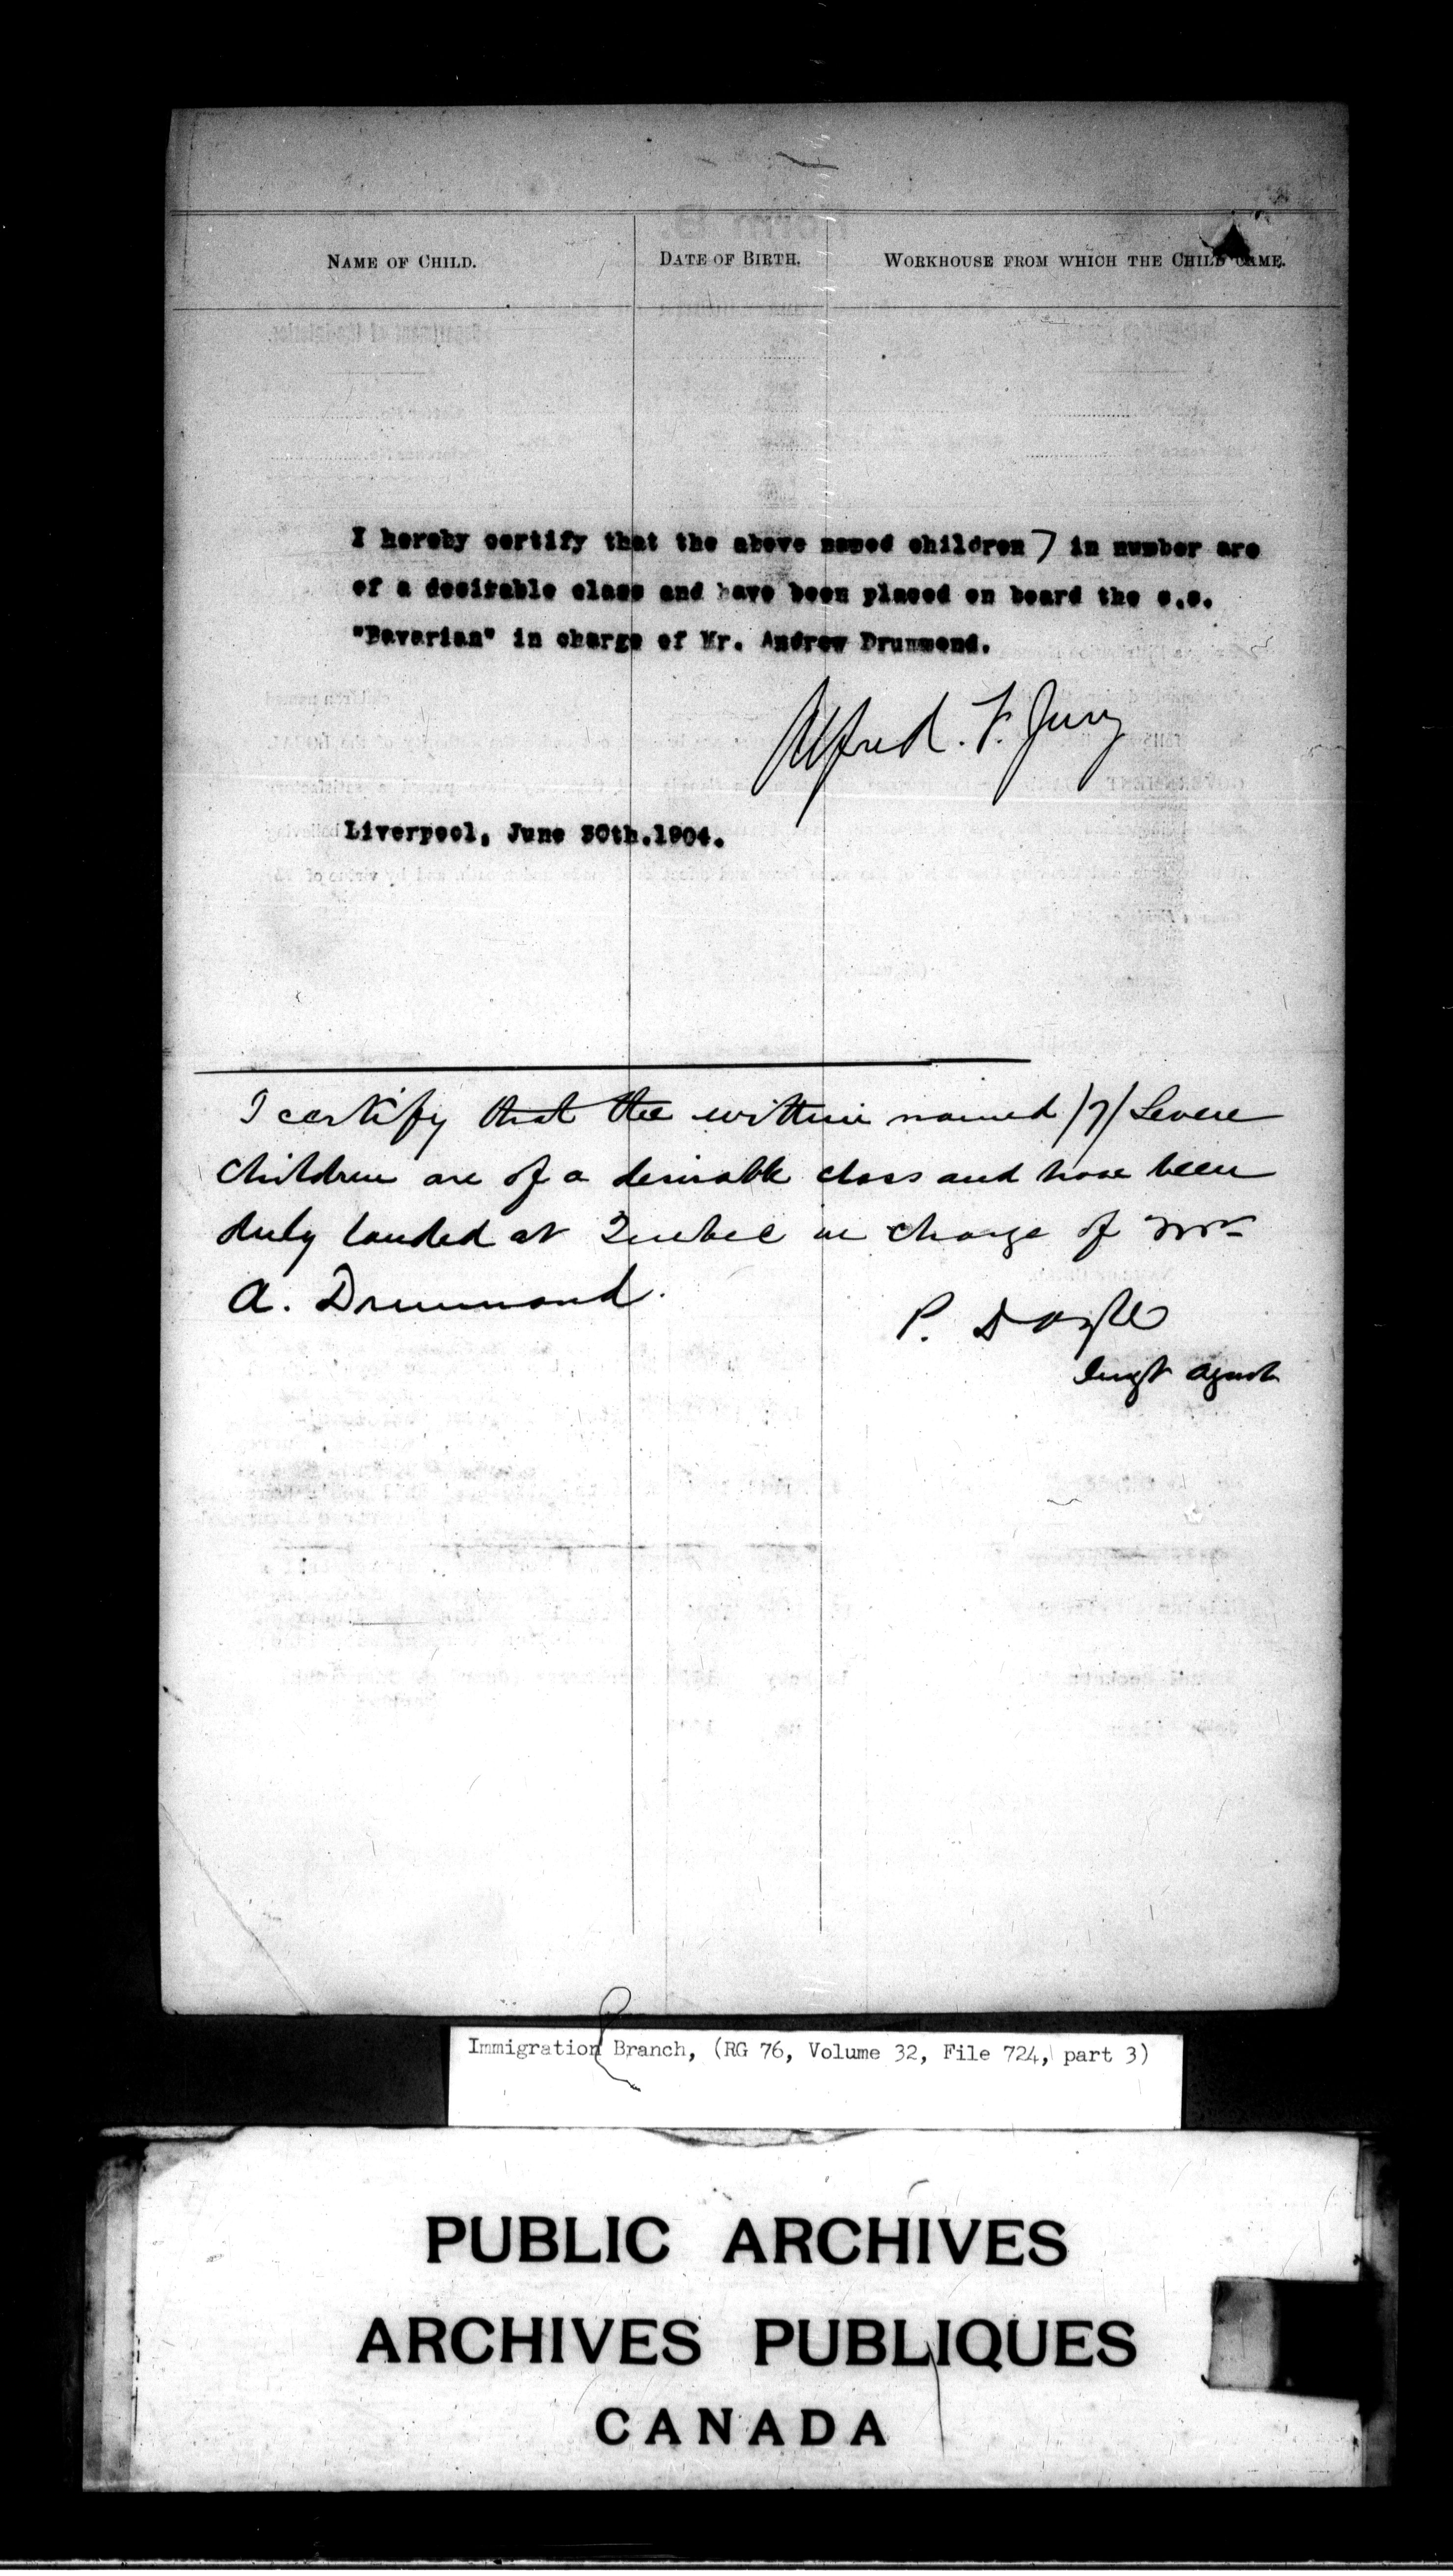 NAME OF CHILD.
DATE OF BIRTH.
WORKHOUSE FROM WHICH THE CHILD CAME.
I hereby certify that the above named children 7 in number are
of a desirable class and have been placed on board the s.s.
"Bavarian" in charge of Mr. Andrew Drummond.
Alfred. F. Jury
Liverpool, June 30th.1904.
I certify that the within named /7/ Seven
Children are of a desirable class and have been
duly landed at Quebec in charge of Mr
A. Drummond.
P. Doyle
Imgt Agent
Immigration Branch, (RG 76, Volume 32, File 724, part 3)
PUBLIC ARCHIVES
ARCHIVES PUBLIQUES
CANADA